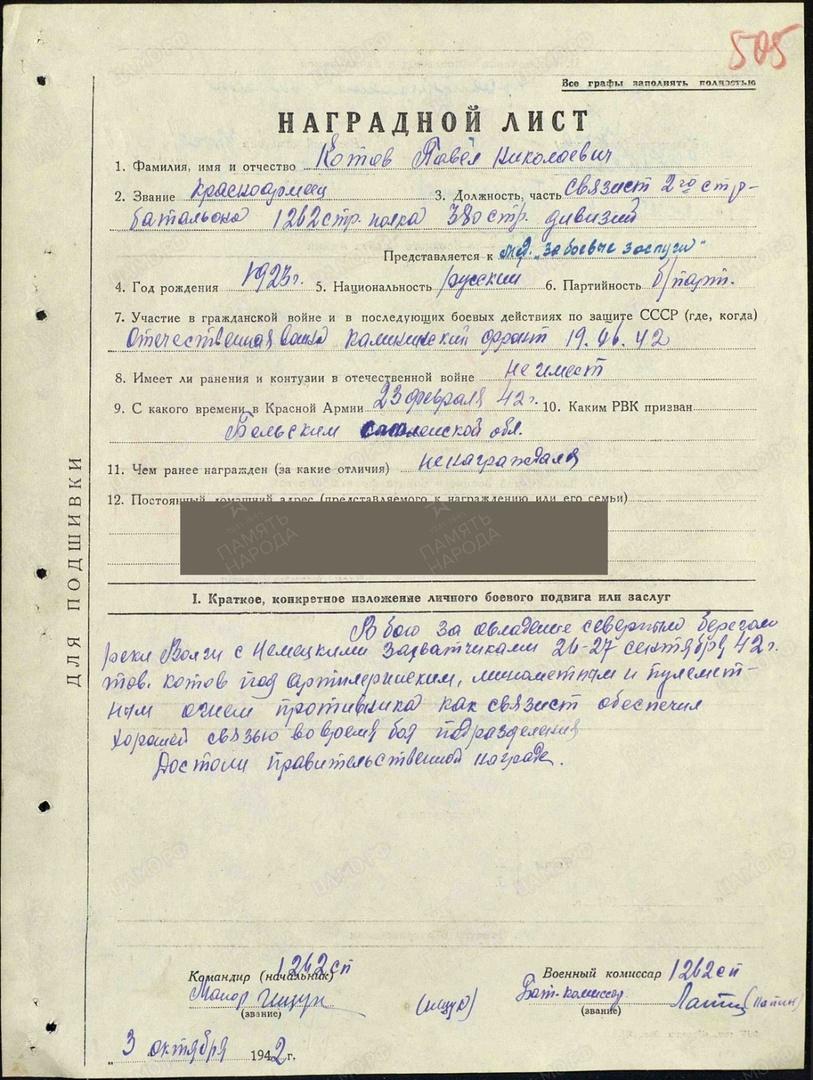 505
Все графы заполнять полностью
НАГРАДНОЙ ЛИСТ
1. Фамилия, имя и отчество Котов Павел Николаевич
2. Звание Красноармеец 3. Должность, часть связист 2го стр-
батальона 1262 стр. полка 380 стр. дивизий
Представляется к мед. „За боевые заслуги"
4. Год рождения 1923 г. 5. Национальность русский 6. Партийность б/парт.
7. Участие в гражданской войне и в последующих боевых действиях по защите СССР (где, когда)
Отечественная война Калининский фронт 42
8. Имеет ли ранения и контузии в отечественной войне не имеет
9. С какого времени в Красной Армии 23 февраля 42 г. 10. Каким РВК призван
Бельским Смоленской обл.
11. Чем ранее награжден (за какие отличия) ненаграждался
12. Постоянный домашний адрес (представляемого к награждению или его семьи)
ПАМЯТЬ НАРОДА ПАМЯТЬ НАРОДА
ДЛЯ ПОДШИВКИ
I. Краткое, конкретное изложение личного боевого подвига или заслуг
В бою за овладение северным берегом
реки Волги с Немецкими захватчиками 26-27 сентября 42 г.
тов. Котов под артилерииским, минометным и пулемет-
ным огнем противника как связист обеспечил
хорошей связью во время боя подразделения
Достоин правительственной награде.
Командир (начальник) 1262 сп Военный комиссар 1262 сп
Майор Ищук (Ищук) Бат. комиссар Лапин (Лапин)
(звание) (звание)
„3 октября 1942 г.